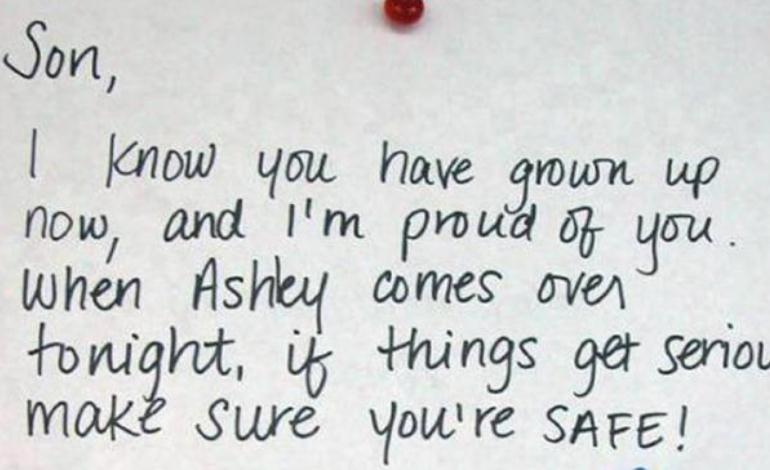 Son,
I know you have grown up
now, and I'm proud of you.
When Ashley comes over
tonight, if things get seriou
make sure you're SAFE!